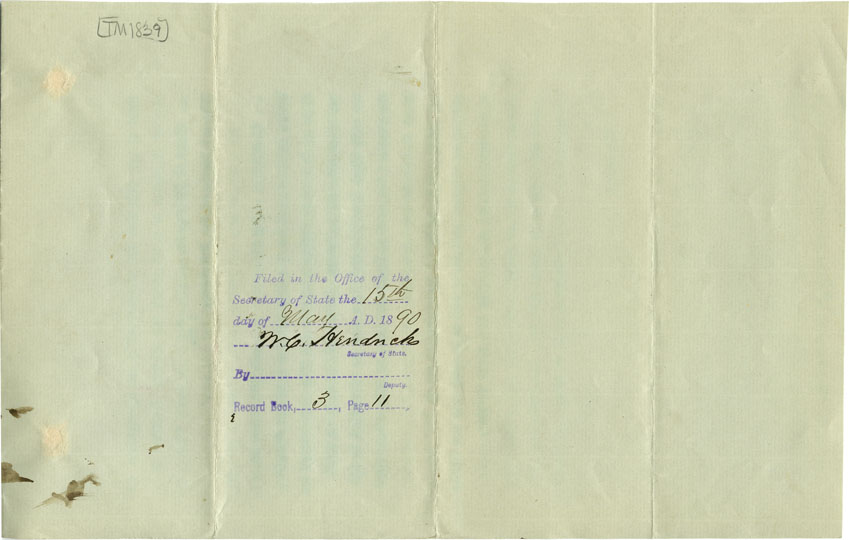 [TM1839]
3
Filed in the Office of the
Secretary of State the 15th
day of May A. D. 1890
W. C. Hendricks
Secretary of State.
By
Deputy.
Record Book, 3, Page 11,